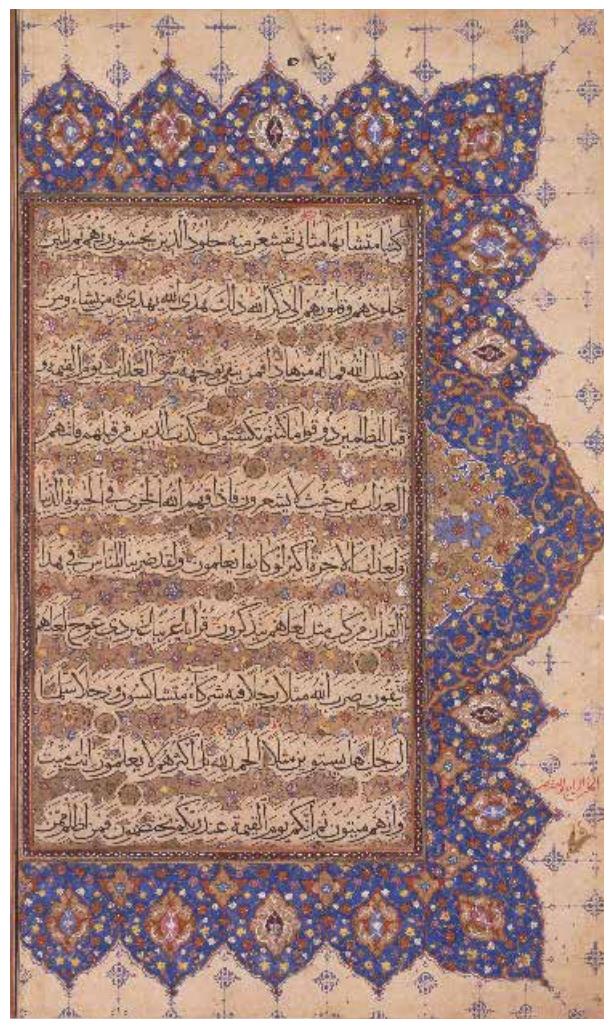 كتبا متشابها مثاني تقشعر منه جلود الذين يخشون ربهم ثم تلين
جلودهم وقلوبهم الى ذكر الله ذلك هدى الله يهدي به من يشاء ومن
يضلل الله فما له من هاد افمن يتقي بوجهه سوء العذاب يوم القيمة و
قيل للظالمين ذوقوا ما كنتم تكسبون كذب الذين من قبلهم فاتهم
العذاب من حيث لا يشعرون فاذاقهم الله الخزي في الحيوة الدنيا
ولعذاب الاخرة اكبر لو كانوا يعلمون ولقد ضربنا للناس في هذا
القران من كل مثل لعلهم يتذكرون قرانا عربيا غير ذي عوج لعلهم
يتقون ضرب الله مثلا رجلا فيه شركاء متشاكسون ورجلا سلما
لرجل هل يستوين مثلا الحمد لله بل اكثرهم لا يعلمون انك ميت
وانهم ميتون ثم انكم يوم القيمة عند ربكم تختصمون فمن اظلم ممن